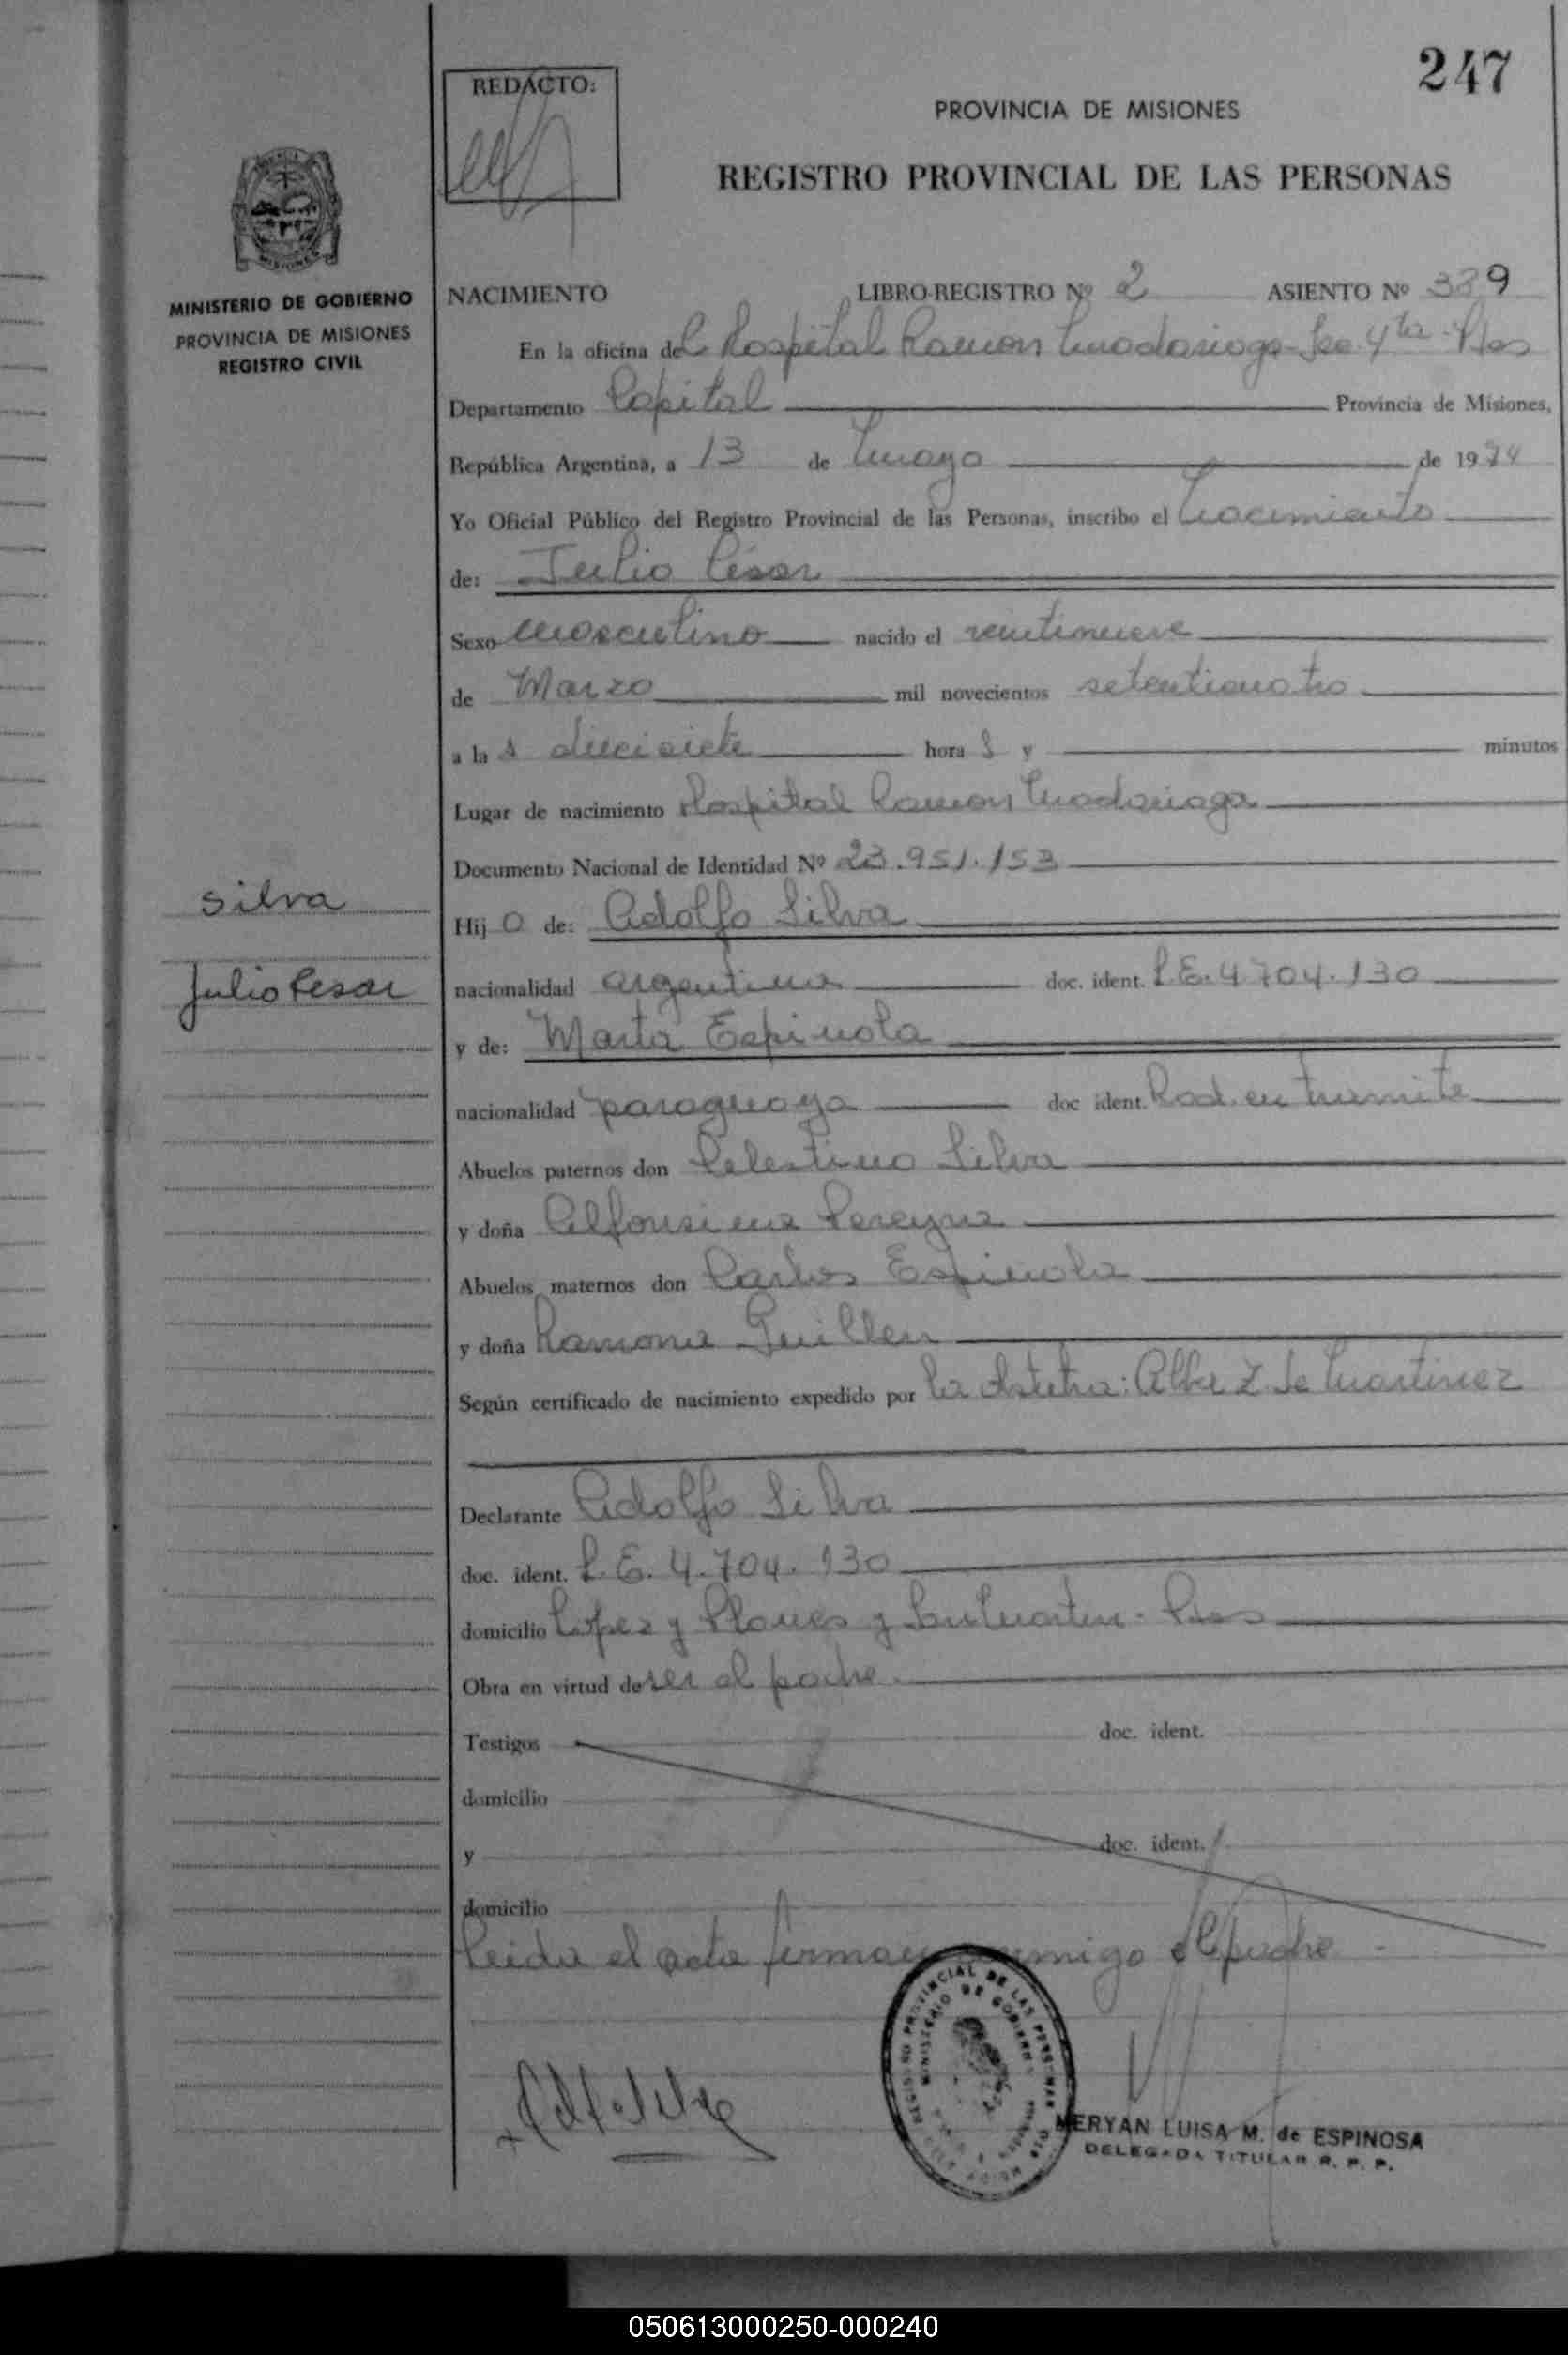 247
REDACTO:
PROVINCIA DE MISIONES
REGISTRO PROVINCIAL DE LAS PERSONAS
MINISTERIO DE GOBIERNO
PROVINCIA DE MISIONES
REGISTRO CIVIL
NACIMIENTO LIBRO-REGISTRO Nº 2 ASIENTO Nº 339
En la oficina del Hospital Ramon Madariaga - Sec 4ta - Pdas
Departamento Capital Provincia de Misiones,
República Argentina, a 13 de Mayo de 1974
Yo Oficial Público del Registro Provincial de las Personas, inscribo el Nacimiento
de: Julio César
Sexo Masculino nacido el veintinueve
de Marzo mil novecientos setenticuatro
a la s diecisiete hora s y minutos
Lugar de nacimiento Hospital Ramon Madariaga
Documento Nacional de Identidad Nº 23.951.153
Silva
Julio Cesar
Hij o de: Adolfo Silva
nacionalidad argentina doc. ident. L.E. 4.704.130
y de: Marta Espinola
nacionalidad paraguaya doc ident. Rad. en tramite
Abuelos paternos don Celestino Silva
y doña Alfonsina Pereyra
Abuelos maternos don Carlos Espinola
y doña Ramona Guillen
Según certificado de nacimiento expedido por la Obstetra: Alba Z. de Martinez
Declarante Adolfo Silva
doc. ident. L.E. 4.704.130
domicilio Lopez y Planes y San Martin - Pdas
Obra en virtud de ser el padre.
Testigos doc. ident.
domicilio
y doc. ident.
domicilio
Leida el acta firman conmigo el padre -
REGISTRO PROVINCIAL DE LAS PERSONAS
MINISTERIO DE GOBIERNO
MERYAN LUISA M. de ESPINOSA
DELEGADA TITULAR R. P. P.
050613000250-000240